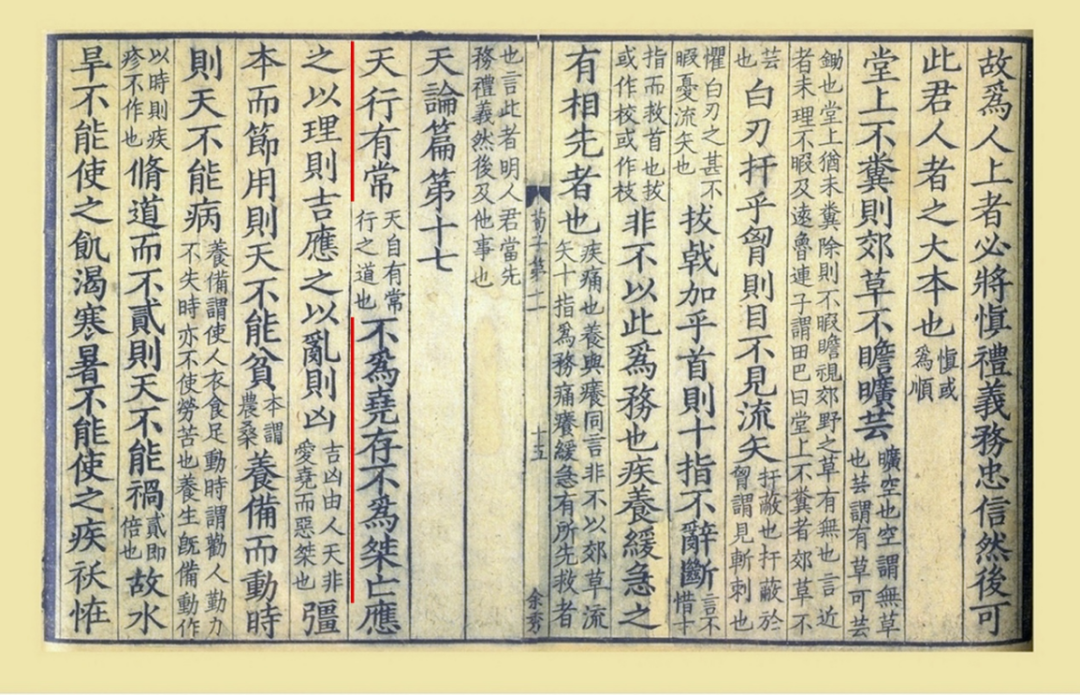 故爲人上者必將愼禮義務忠信然後可
此君人者之大本也愼或爲順
堂上不糞則郊草不瞻曠芸曠空也空謂無草也芸謂有草可芸
鋤也堂上猶未糞除則不暇瞻視郊野之草有無也言近者未理不暇及遠魯連子謂田巴曰堂上不糞者郊草不
芸也白刃扞乎胷則目不見流矢扞蔽也扞蔽於胷謂見斬刺也
懼白刃之甚不暇憂流矢也拔戟加乎首則十指不辭斷言不惜十
指而救首也拔或作校或作枝非不以此爲務也疾養緩急之
有相先者也疾痛也養與癢同言非不以郊草流矢十指爲務痛癢緩急有所先救者
荀子第十一
十五
余秀
也言此者明人君當先務禮義然後及他事也
天論篇第十七
天行有常天自有常行之道也不爲堯存不爲桀亡應
之以理則吉應之以亂則凶吉凶由人天非愛堯而惡桀也彊
本而節用則天不能貧本謂農桑養備而動時
則天不能病養備謂使人衣食足動時謂勸人勤力不失時亦不使勞苦也養生旣備動作
以時則疾疹不作也脩道而不貳則天不能禍貳即倍也故水
旱不能使之飢渴寒暑不能使之疾祅怪